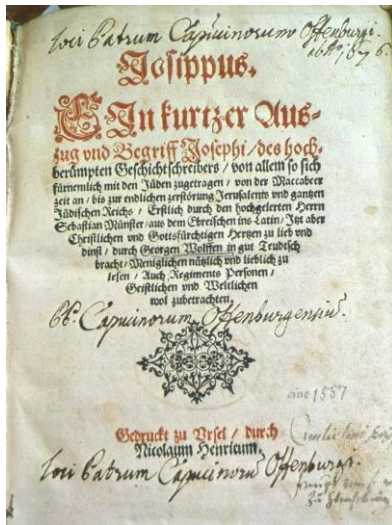 loci Patrum Capucinorum Offenburgi.
Josippus.
Ein kurtzer Aus-
zug vnd Begriff Josephi / des hoch-
berümpten Geschichtschreibers / von allem so sich
fürnemlich mit den Jüden zugetragen / von der Maccabeer
zeit an / bis zur endlichen zerstörung Jerusalems vnd gantzen
Jüdischen Reichs / Erstlich durch den hochgelerten Herrn
Sebastian Münster / aus dem Ebreischen ins Latin / Jtzt aber
Christlichen vnd Gottsfürchtigen Hertzen zu lieb vnd
dinst / durch Georgen Wolffen in gut Teudsch
bracht / Menniglichen nützlich vnd lieblich zu
lesen / Auch Regiments Personen /
Geistlichen vnd Weltlichen
wol zubetrachten.
Capucinorum Offenburgensiu.
1557
Gedruckt zu Vrsel / durch
Nicolaum Henricum.
loci Patrum Capucinoru Offenburgi.